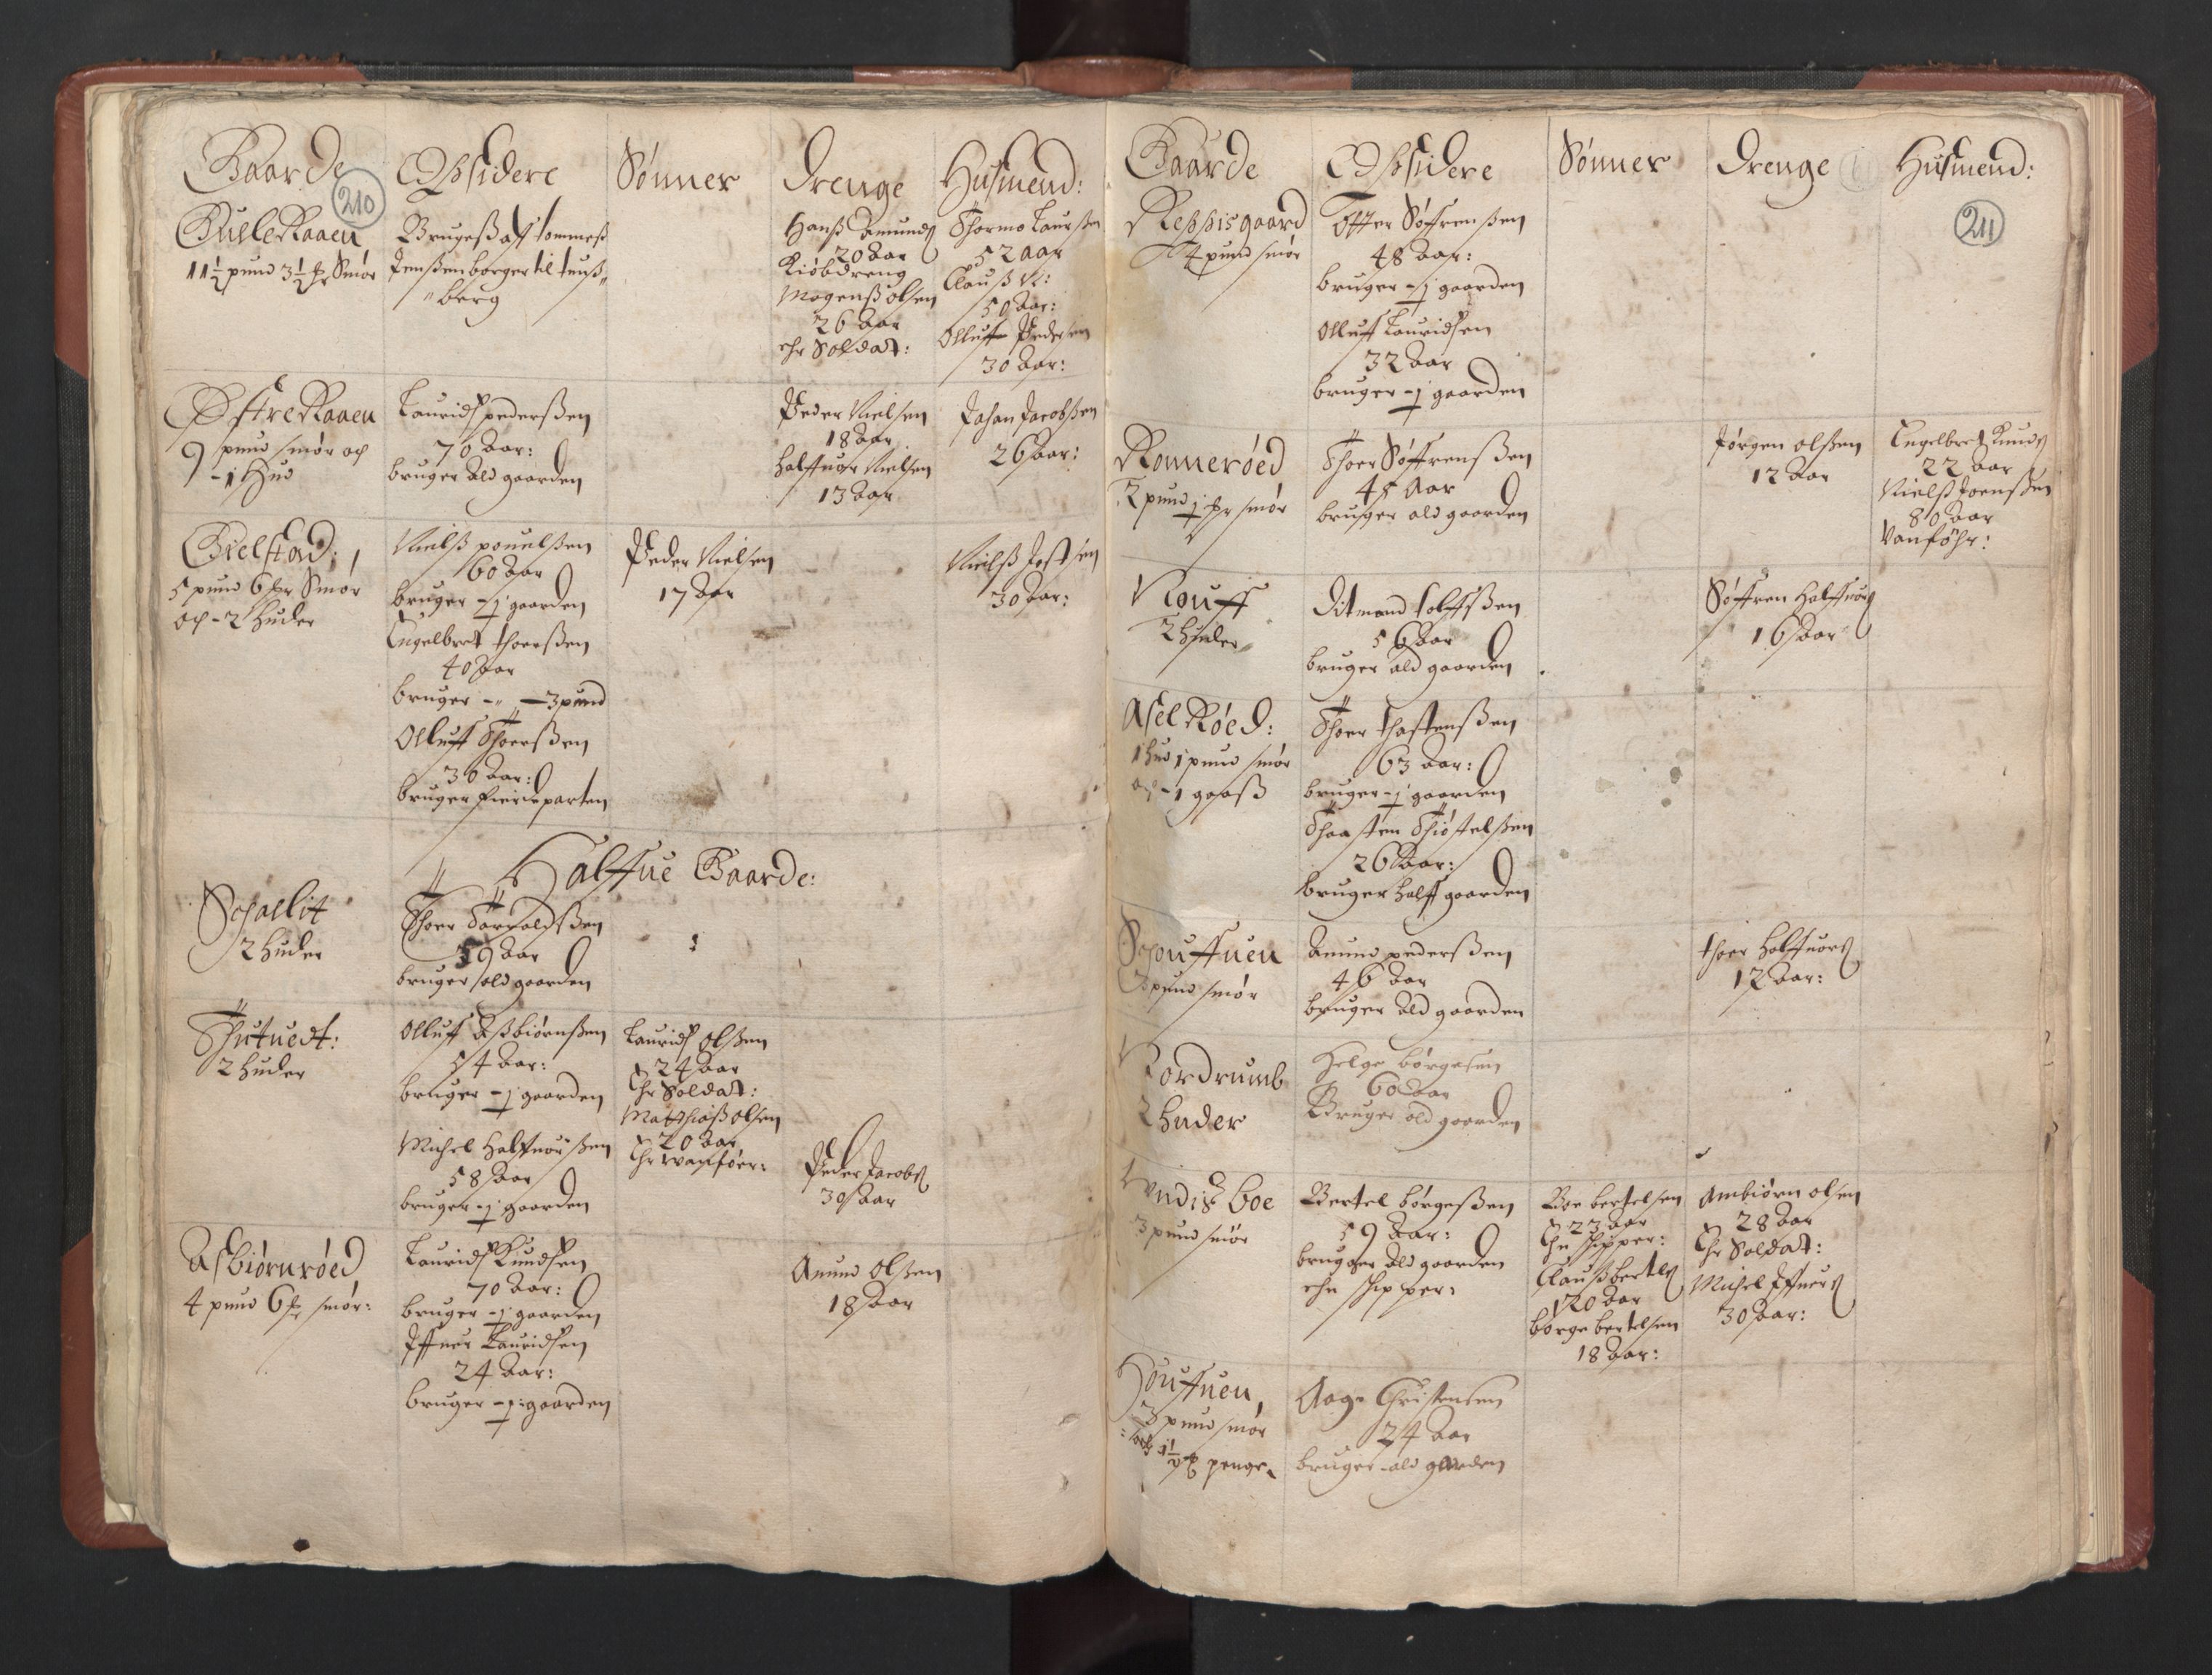 Gaarde
210
Opsidere
Sønner
Drenge
Husmend:
Huele Raaen
11½ pund 3½ Smør
Brugeß aff Tommeß
Jenßen borger til Tunß„
„berg
Hanß Amunds
20 Aar
Kiøbdreng
Mogenß olsen
26 Aar
ehr Soldat:
Thormo Laurßen
52 aar
Clauß
50 Aar:
Olluff Pedersen
30 Aar:
Østre Raaen
9 pund smør och
- 1 Hud
Lauridß pederßen
70 Aar:
bruger Ald gaarden
Peder Nielsen
18 Aar
halffuor Nielsen
13 Aar
Johan Jacobßen
26 Aar:
Gielstad:
5 pund 6 Smør
och - 2 huder
Nielß pouelßen
60 Aar
bruger - j gaarden
Engelbret Thoerßen
40 Aar
bruger - „ - 3 pund
Olluff Thoerßen
30 Aar:
bruger fierdeparten
Peder Nielsen
17 Aar
Nielß Jostsen
30 Aar:
Halffue Gaarde:
Schaelit
2 huder
Thoer Torvoldßen
59 Aar
bruger ald gaarden
Thutuedt:
2 huder
Olluff Aßbiørnßen
54 Aar:
bruger - j gaarden
Michel Halffuorßen
58 Aar
bruger - j gaarden
Lauridß olßen
24 Aar
Ehr Soldat:
Matthiaß olsen
20 Aar
Ehr wanføer:
Peder Jacobs
30 Aar
Asbiørnrøed
4 pund 6 smør:
Lauridß Kundßen
70 Aar:
bruger - j gaarden
Iffuer Lauridßen
24 Aar:
bruger - j gaarden
Amund Olßen
18 Aar
Gaarde
Opsidere
Sønner
Drenge
Husmend:
211
Reppisgaard
4 pund smør
Otter Søffrenßen
48 Aar:
bruger - j gaarden
Olluff Lauridsen
32 Aar
bruger - j gaarden
Ronnerøed
2 pund smør
Thoer Søffrenßen
45 Aar
bruger ald gaarden
Jørgen olßen
12 Aar
Engelbret Knuds
22 Aar
Nielß Joenßen
80 Aar
Vanføhr:
Rouff
2 huder
Ditmand Tolffßen
56 Aar
bruger ald gaarden
Søffren Halffuors
16 Aar
Asel Røed:
1 hud 1 pund smør
och - 1 gaaß
Thoer Thostenßen
63 Aar:
bruger - j gaarden
Thaasten Thiøstelßen
26 Aar:
bruger halff gaarden
Schouffuen
3 pund smør
Amund pederßen
46 Aar
bruger Ald gaarden
Thoer Halffuors
12 Aar:
Nordrumb
2 huder
Helge børgesen
60 Aar
Bruger ald gaarden
Vndisboe
3 pund smør
Bertel børgeßen
59 Aar:
bruger Ald gaarden
ehn Skipper:
Boe bertelsen
23 Aar
Ehn skipper:
Clauß bertels
20 Aar
børge bertelsen
18 Aar:
Ambiørn olsen
28 Aar
Ehr Soldat:
Michel Iffuers
30 Aar:
Houffuen
3 pund smør
och 1½ penge
Aage Christensen
24 Aar
bruger ald gaarden